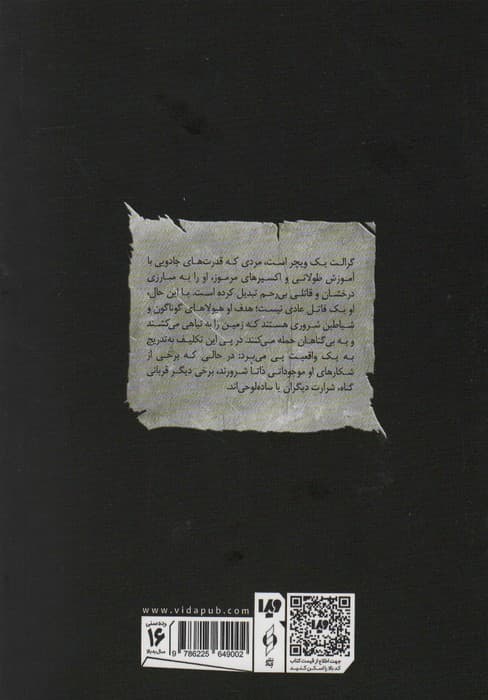 گرالت یک ویچر است، مردی که قدرت‌های جادویی با
آموزش طولانی و اکسیرهای مرموز، او را به مبارزی
درخشان و قاتلی بی‌رحم تبدیل کرده است. با این حال،
او یک قاتل عادی نیست؛ هدف او هیولاهای گوناگون و
شیاطین شروری هستند که زمین را به تباهی می‌کشند
و به بی‌گناهان حمله می‌کنند. در پی این تکلیف به‌تدریج
به یک واقعیت پی می‌برد: در حالی که برخی از
شکارهای او موجوداتی ذاتا شرورند، برخی دیگر قربانی
گناه، شرارت دیگران یا ساده‌لوحی‌اند.
www.vidapub.com
رده‌سنی
۱۶
سال به بالا
9 786225 649002
ویدا
نشر
ویدا
جهت اطلاع از قیمت کتاب
کد بالا را اسکن کنید